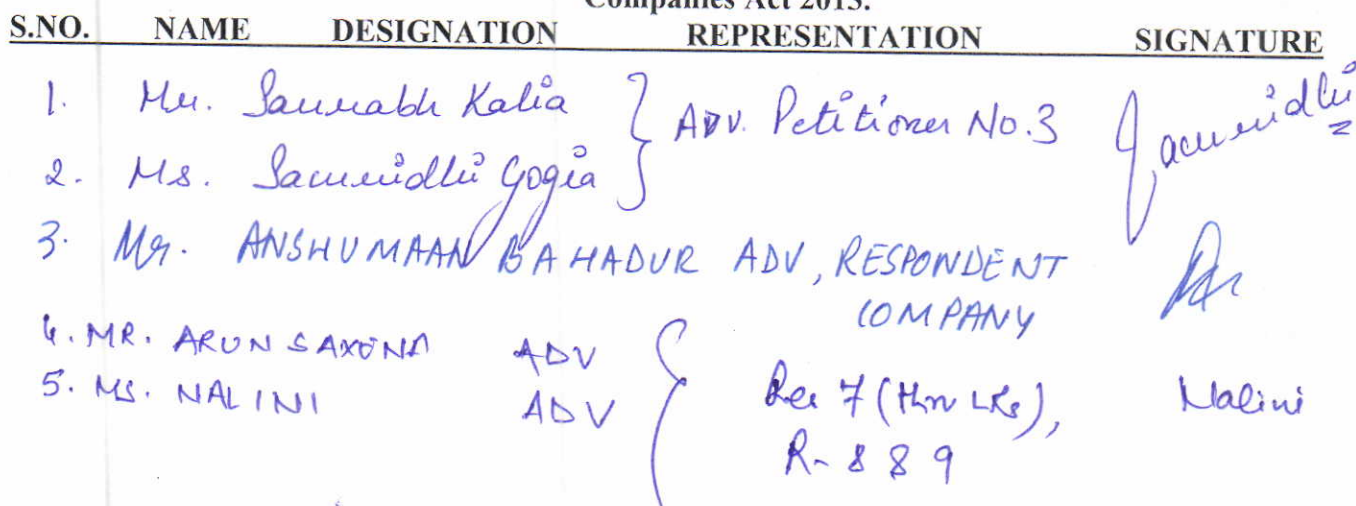 Companies Act 2013.
S.NO. NAME DESIGNATION REPRESENTATION SIGNATURE
1. Mr. Saurabh Kalia } ADV. Petitioner No.3
2. Ms. Samridhi Gogia Samridhi
3. Mr. ANSHUMAAN BAHADUR ADV, RESPONDENT
COMPANY
4. MR. ARUN SAXENA ADV
5. MS. NALINI ADV Res 7 (thru LRs), Nalini
R-8 & 9